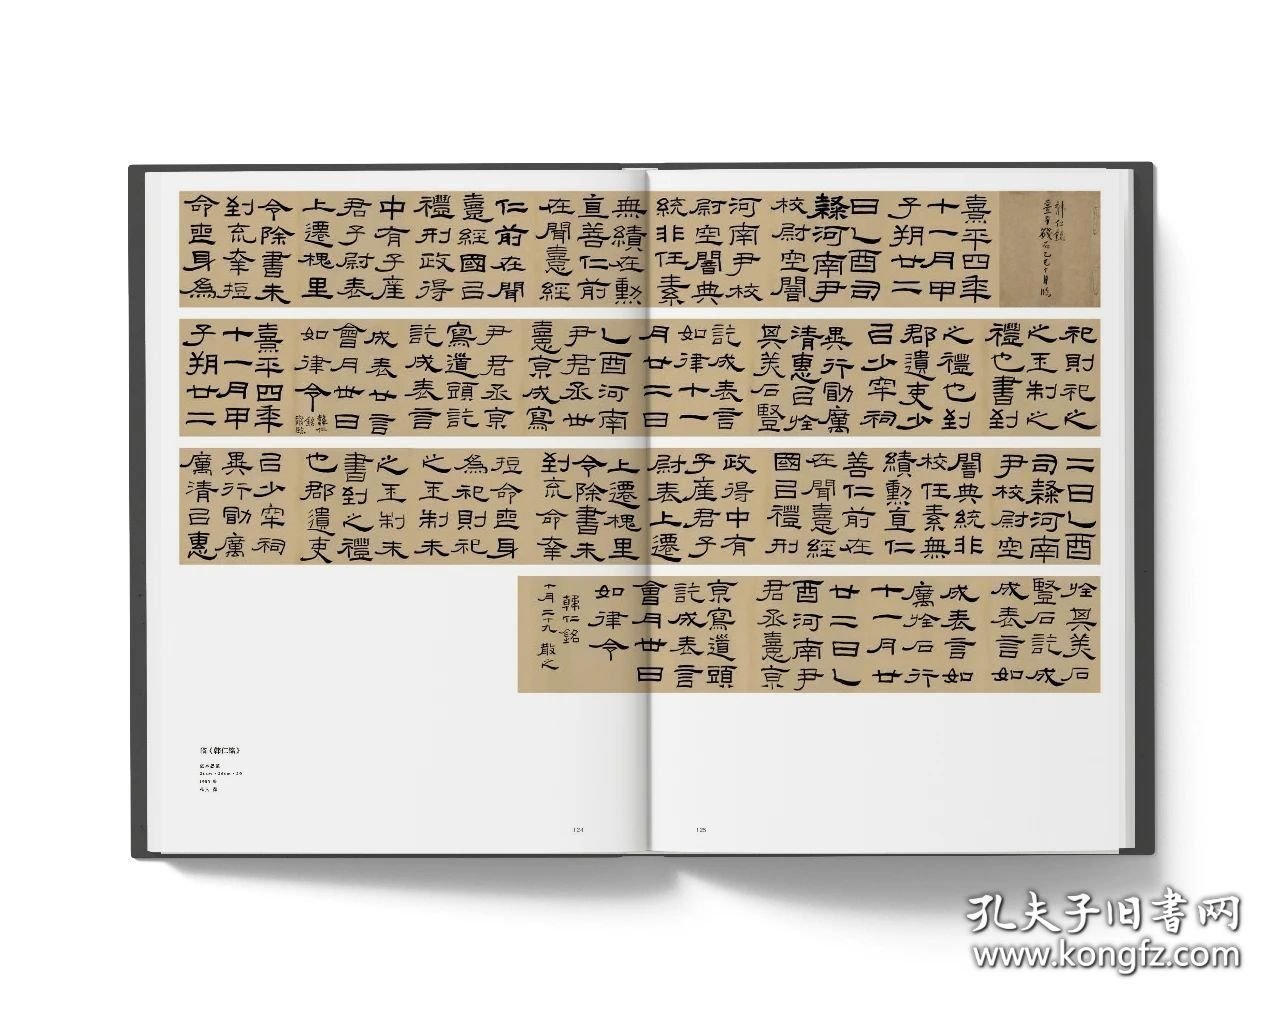 韩仁铭
熹平四年
十一月甲
子朔廿二
日乙酉司
隸河南尹
校尉空闇
河南尹校
尉空闇典
統非任素
無績在勳
宣善仁前
在聞憙經
仁前在聞
憙經國㠯
禮刑政得
中有子產
君子尉表
上遷槐里
令除書未
到不幸短
命喪身為
祀則祀之
之王制之
禮也書到
之禮也到
郡遣吏少
㠯少牢祠
異行勖厲
清惠㠯旌
其美石豎
訖成表言
如律十一
月廿二日
乙酉河南
尹君丞卅
憙京成寫
尹君丞京
寫道頭訖
訖成表言
成表廿言
會月卅日
如律令
韓仁
銘
臨
熹平四年
十一月甲
子朔廿二
二日乙酉
司隸河南
尹校尉空
闇典統非
校任素無
績勳宣仁
善仁前在
在聞憙經
國㠯禮刑
政得中有
子產君子
尉表上遷
上遷槐里
令除書未
到不命幸
短命喪身
為祀則祀
之王制未
之王制未
書到之禮
也郡遣吏
㠯少牢祠
異行勖厲
厲清㠯惠
旌其美石
豎石訖成
成表言如
成表言如
厲旌石行
十一月廿
廿二日乙
酉河南尹
君丞憙京
京寫道頭
訖成表言
會月卅日
如律令
韓仁銘
十月二十九 散之
临《韩仁铭》
124
125
孔夫子旧书网
www.kongfz.com